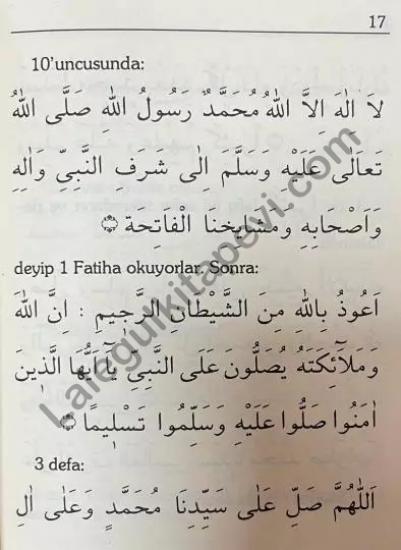 17
10'uncusunda:
لَا اِلٰهَ اِلَّا اللّٰهُ مُحَمَّدٌ رَسُولُ اللّٰهِ صَلَّى اللّٰهُ
تَعَالٰى عَلَيْهِ وَسَلَّمَ اِلٰى شَرَفِ النَّبِىِّ وَاٰلِهِ
وَاَصْحَابِهِ وَمَشَايِخِنَا الْفَاتِحَةَ ۞
deyip 1 Fatiha okuyorlar. Sonra:
اَعُوذُ بِاللّٰهِ مِنَ الشَّيْطَانِ الرَّجِيمِ : اِنَّ اللّٰهَ
وَمَلَآئِكَتَهُ يُصَلُّونَ عَلَى النَّبِىِّ يَآ اَيُّهَا الَّذِينَ
اٰمَنُوا صَلُّوا عَلَيْهِ وَسَلِّمُوا تَسْلِيمًا ۞
3 defa:
اَللّٰهُمَّ صَلِّ عَلٰى سَيِّدِنَا مُحَمَّدٍ وَعَلٰى اٰلِ
Lalegulkitapevi.com